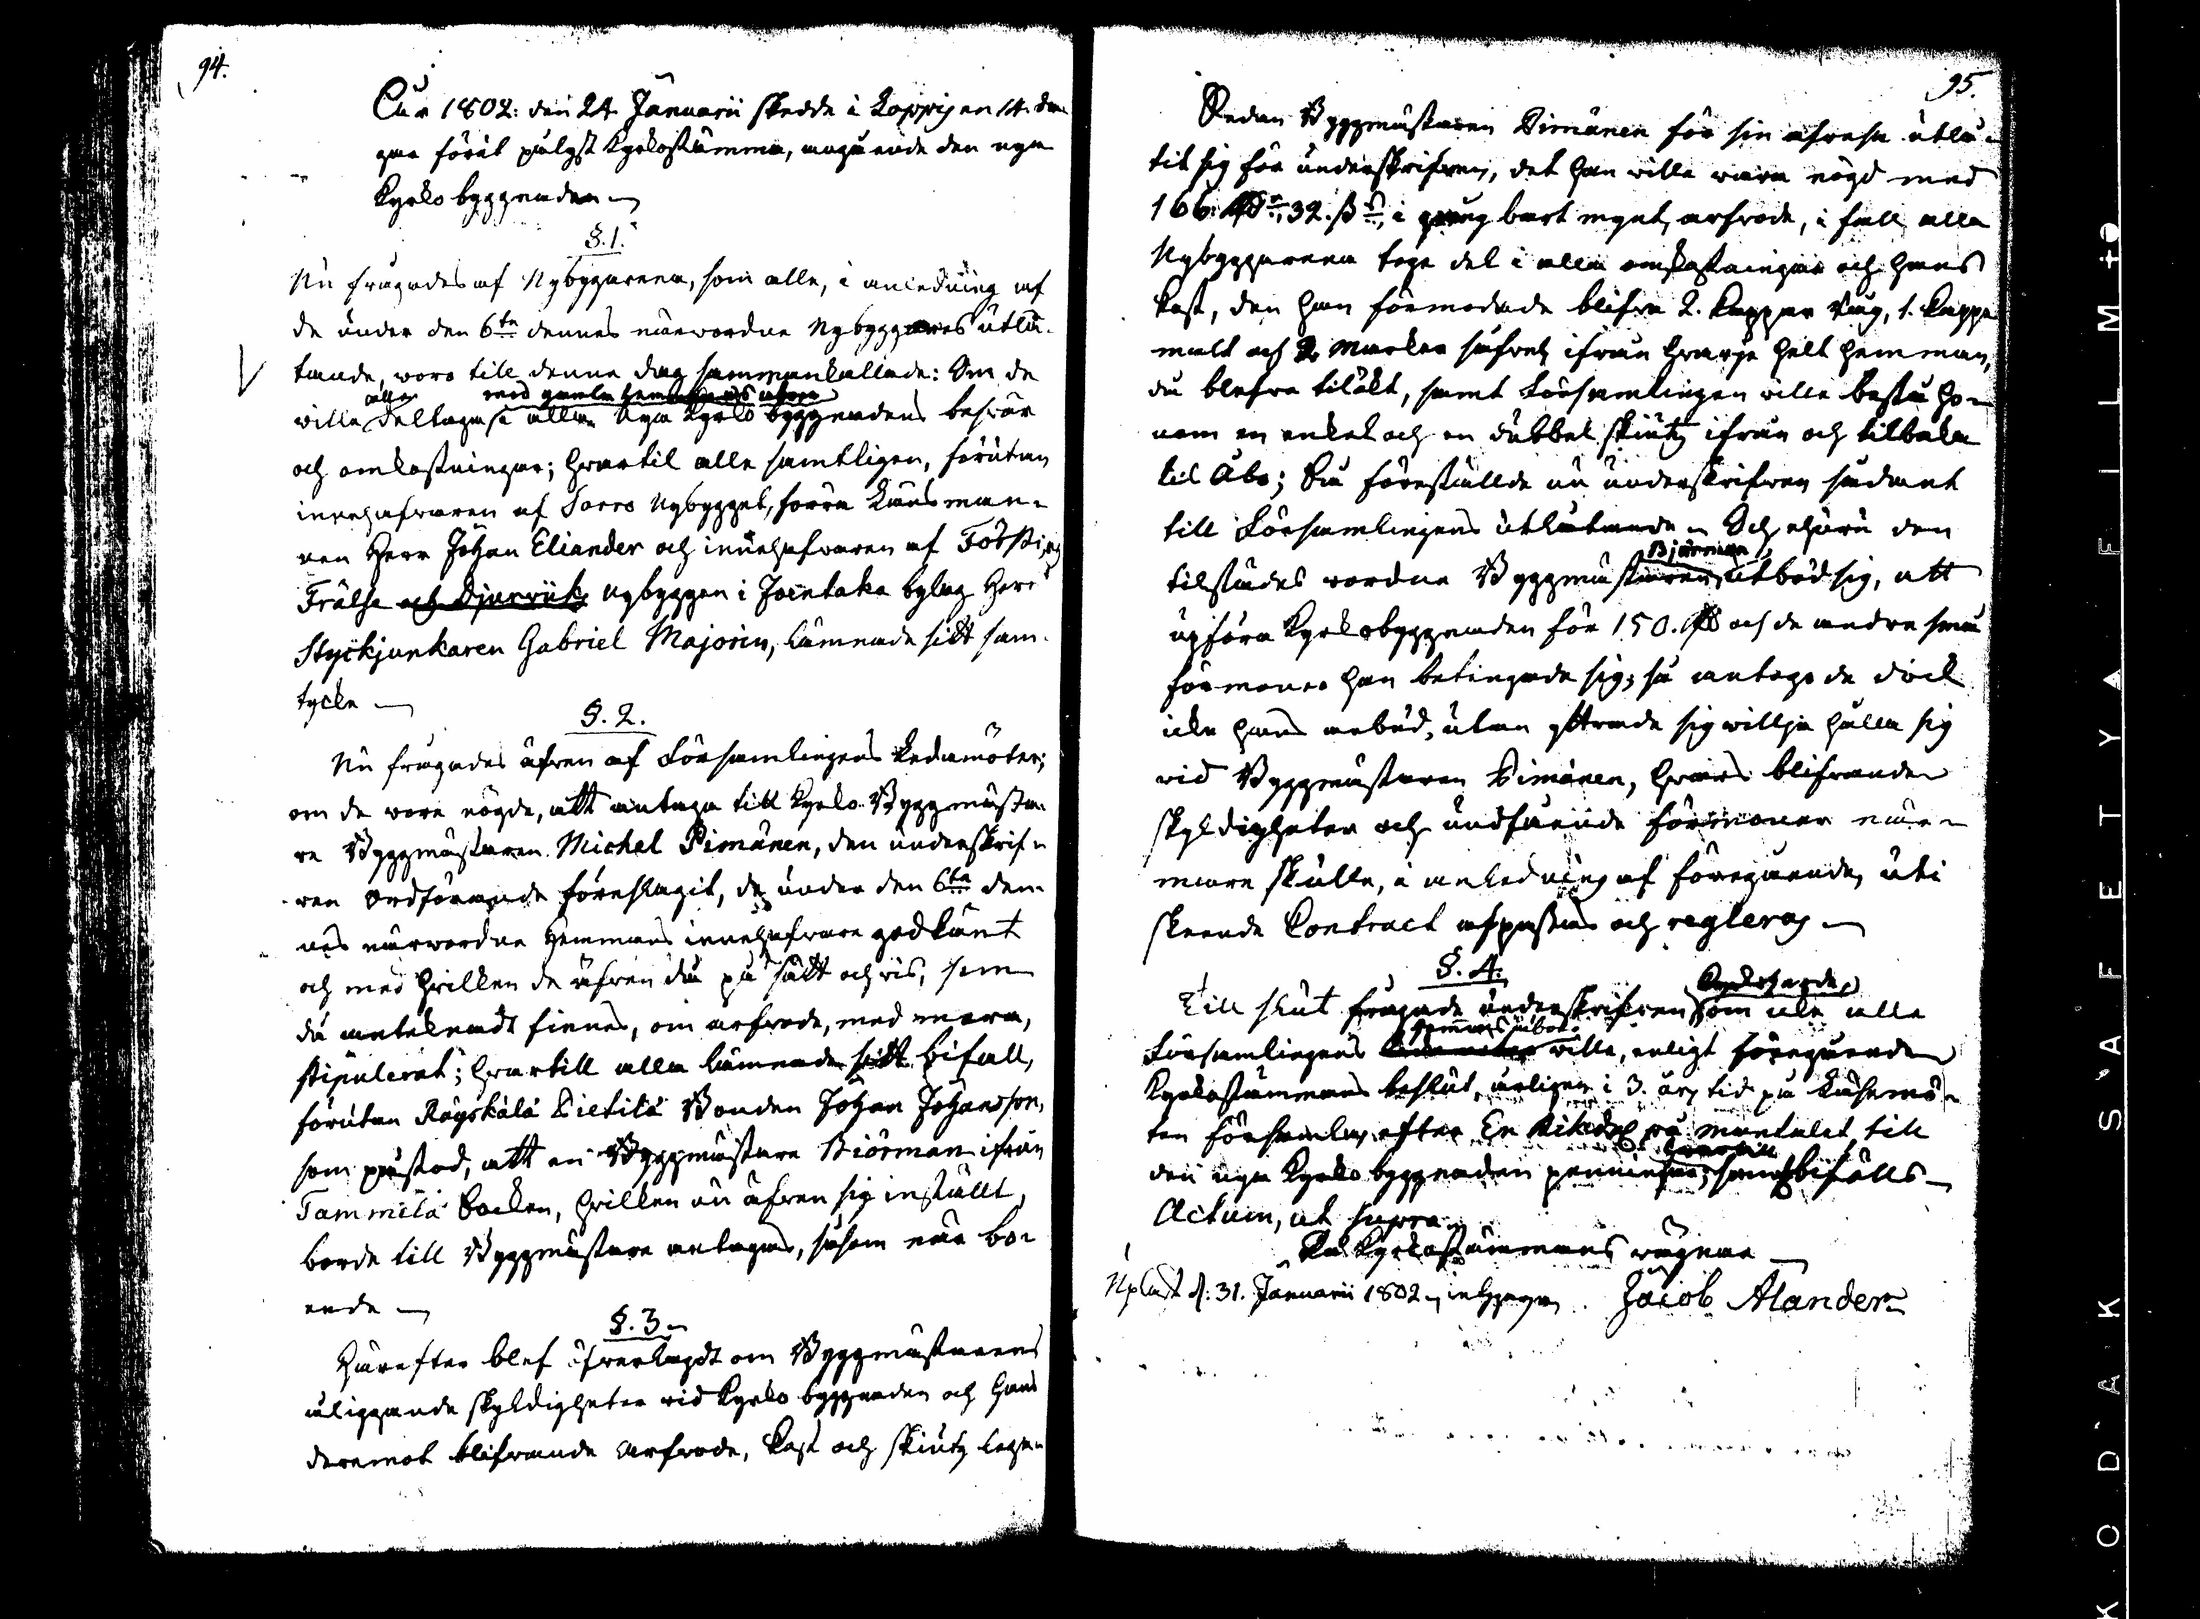 94.
Åhr 1802: den 24. Januarii skedde i Loppis en 14. da-
gar förut pålyst Kyrkostämma, angående den nya
Kyrko byggnaden
§. 1.
Nu frågades af Nybyggarena, som alla, i anledning af
de under den 6te dennes närwordne Nybyggares utlå-
tande, woro till denna dag sammankallade: Om de
alla med gamla hemmans åboer
wille deltaga i alla Nya Kyrko byggnadens beswär
och omkostningar; hwartil alla samtligen, förutan
innehafwaren af Torro Nybygget, förra Länsman-
nen Herr Johan Eliander och innehafwaren af
Frälse och nybyggen i Joentaka bylag Herr
Styckjunkaren Gabriel Majorin, lämnade sitt sam-
tycke
§. 2.
Nu frågades äfwen af Församlingens Ledamöter;
om de wore nögde, att antaga till Kyrko Byggmästa-
re Byggmästaren Michel Pimänen, den underskrif-
wen Ordförande föreslagit, de under den 6te den-
nes närwordne Hemmans innehafware godkänt
och med hwilken de äfwen då på sätt och wis, som
då antecknadt finnes, om arfwode, med mera,
stipulerat; hwartill alla lämnade sitt bifall,
förutan Räyskälä Pietilä Bonden Johan Johansson,
som påstod, att en Byggmästare Biörman ifrån
Tammela Socken, hwilken nu äfwen sig inställt,
borde till Byggmästare antagas, såsom när bo-
ende
§. 3
Härefter blef öfwerlagdt om Byggmästarens
åliggande skyldigheter wid Kyrko byggnaden och hans
deremot blifwande arfwode, kost och skiuts lega.
95.
Sedan Byggmästaren Pimänen för sin afresa utlå-
tit sig för underskrifwen, det han wille wara nögd med
166. Rd 32. ß i gångbart mynt, arfwode, i fall alla
Nybyggarena toge del i alla omkostningar och hans
kost, den han förmodade blifwa 2. Kappar Råg, 1. Kappe
malt och 2 Marker ifrån hwarje helt hemman,
då blefwe tilökt, samt Församlingen wille bestå ho-
nom en enkel och en dubbel skiuts ifrån och tilbaka
til Åbo; Så föreställde nu underskrifwen sådant
till Församlingens utlåtande. Och ehuru den
Biörman
tilstädes wordne Byggmästaren utböd sig, att
upföra Kyrkobyggnaden för 150. Rd och de andra små
förmoner han betingade sig; så antogo de dock
icke hans anbud, utan yttrade sig willja hålla sig
wid Byggmästaren Pimänen, hwars blifwande
skyldigheter och undfående förmoner när-
mare skulle, i anledning af föregående, uti
skeende Contract afpassas och regleras
§. 4.
Till slut frågade underskrifwen om icke alla
Hemmans åboer
Församlingens wille, enligt föregående
Kyrkostämmans beslut, årligen i 3. års tid på
efter En Riksdal på mantalet till
hwartill
den nya Kyrko byggnaden penningar; samt bifölls
Actum, ut supra
På Kyrkostämmans wägnar
Upläst d. 31. Januarii 1802. Jacob Alander
KODAK SAFETY FILM